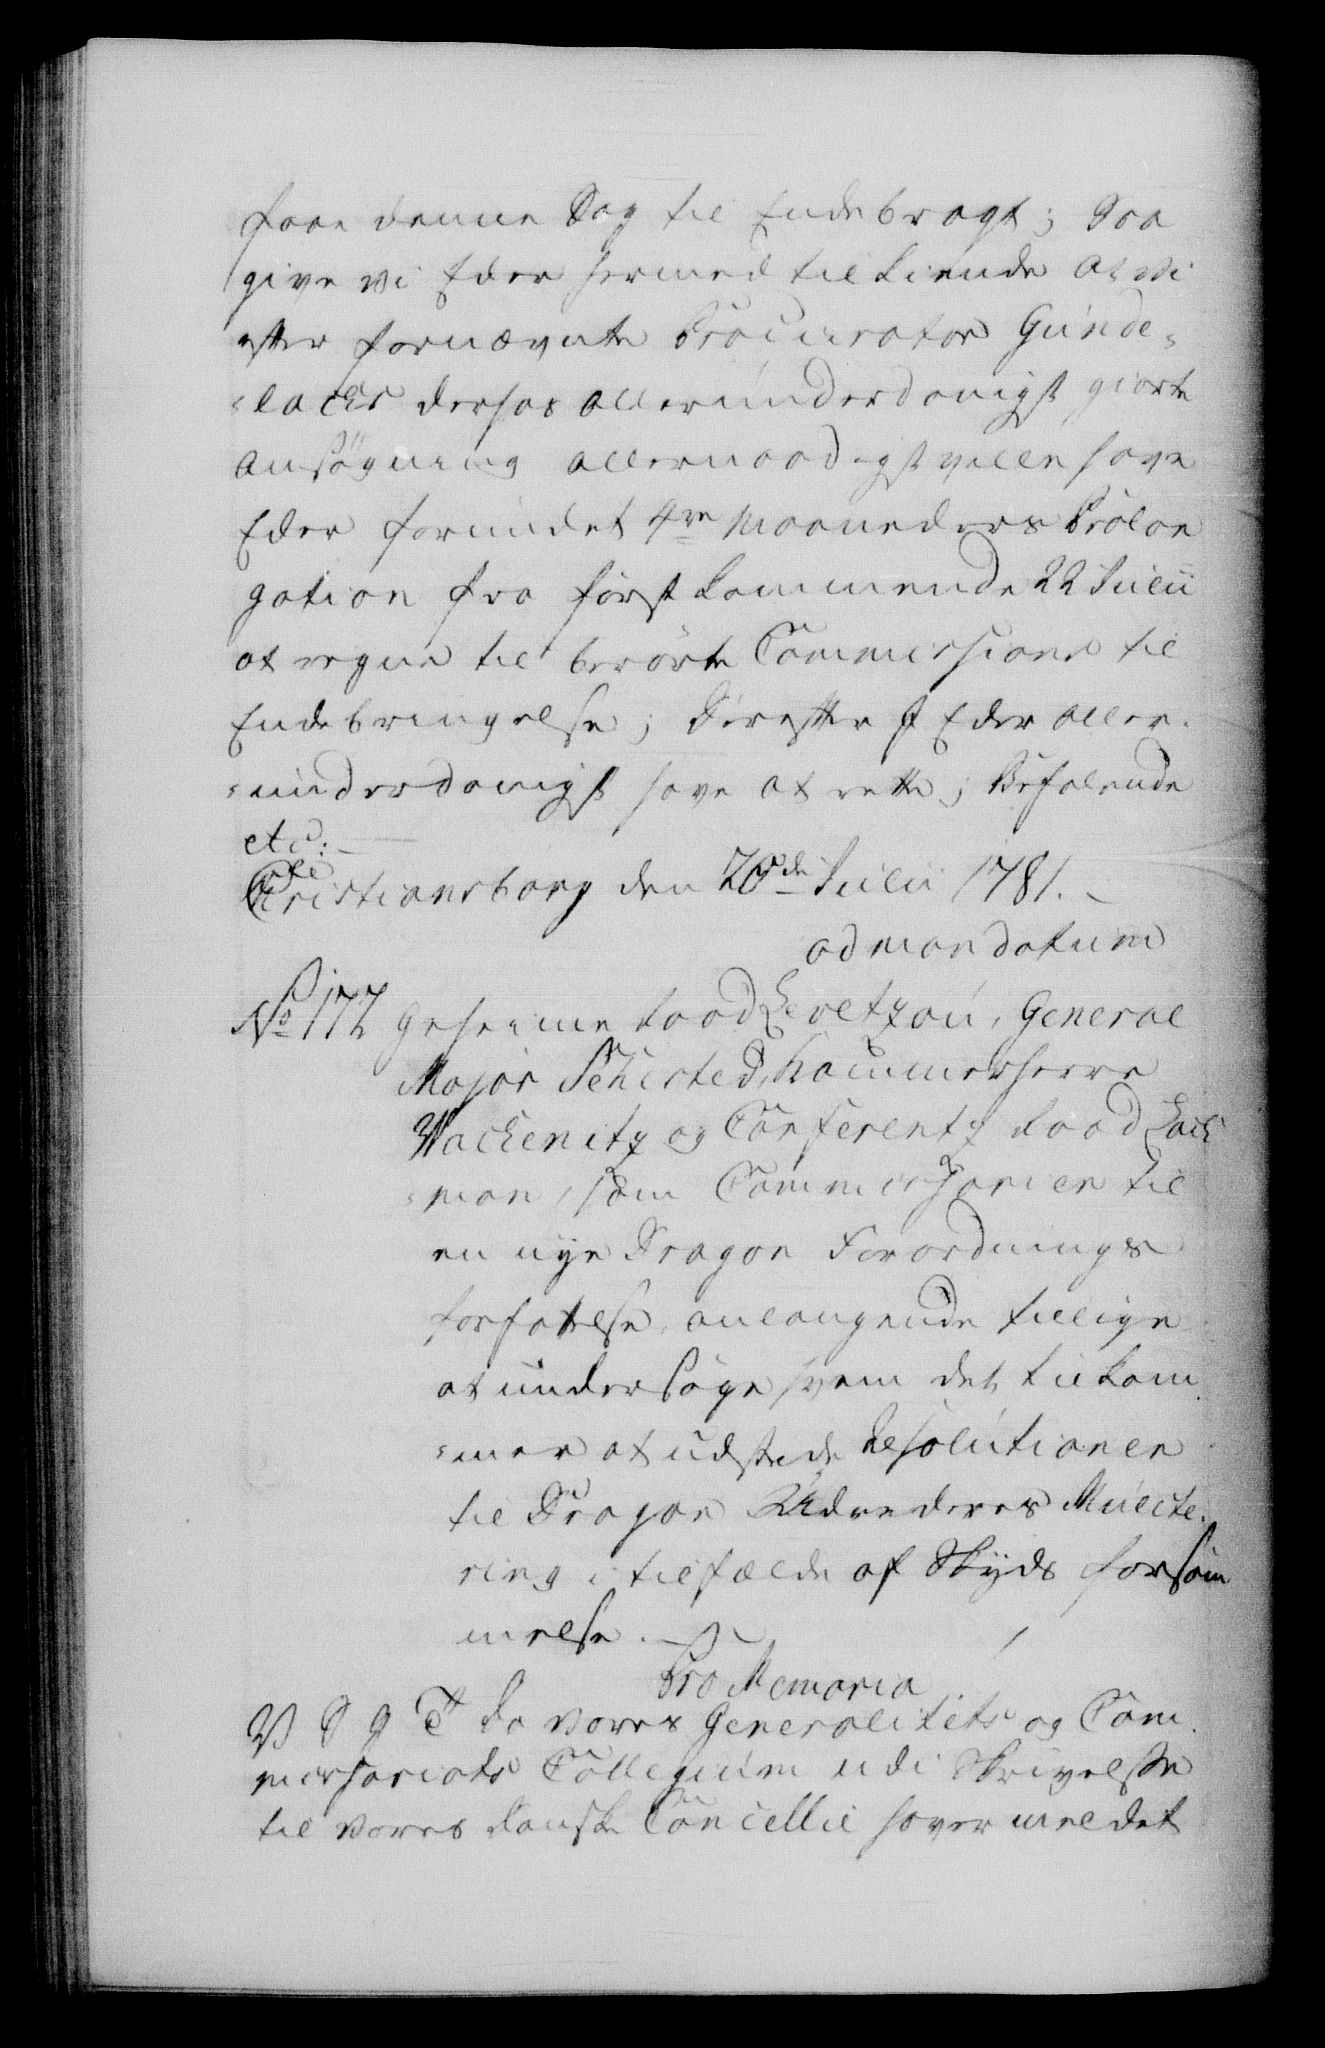 faae denne Sag til Endebragt; Saa
give vi Eder hermed tilkiende at vi
efter fornævnte Procurator Gunde-
-lachs derfor allerunderdanigst giorte
Ansögning allernaadigst ville have
Eder forundet 4re Maaneders Prolon
gation fra först kommende 22 Julii
at regne til berörte Commissions til
Endebringelse; Derefter I Eder aller-
-underdanigst have at rette; Befalende
etc:
Christiansborg den 20de Julii 1781.
ad mandatum
No 177 Geheime Raad Levetzou, General
Major Sehested, Kammerherre
Wackenitz og Conferentz Raad Lach
-man, som Commissarier til
en nye Dragon Forordnings
forfattelse, anlangende tillige
at undersöge hvem det tilkom
-mer at udstede Resolutioner
til Dragon Udrederes Mulcte-
ring i tilfælde af Skyds forsöm
melse.
Pro Memoria
V S G T Da vores Generalitets og Com
missariats Collegium udi Skrivelse
til vores danske Cancellie haver meldet